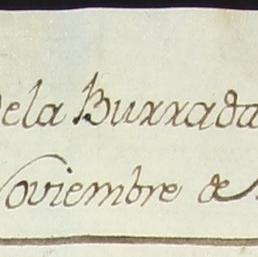 dela Burrada
Noviembre de